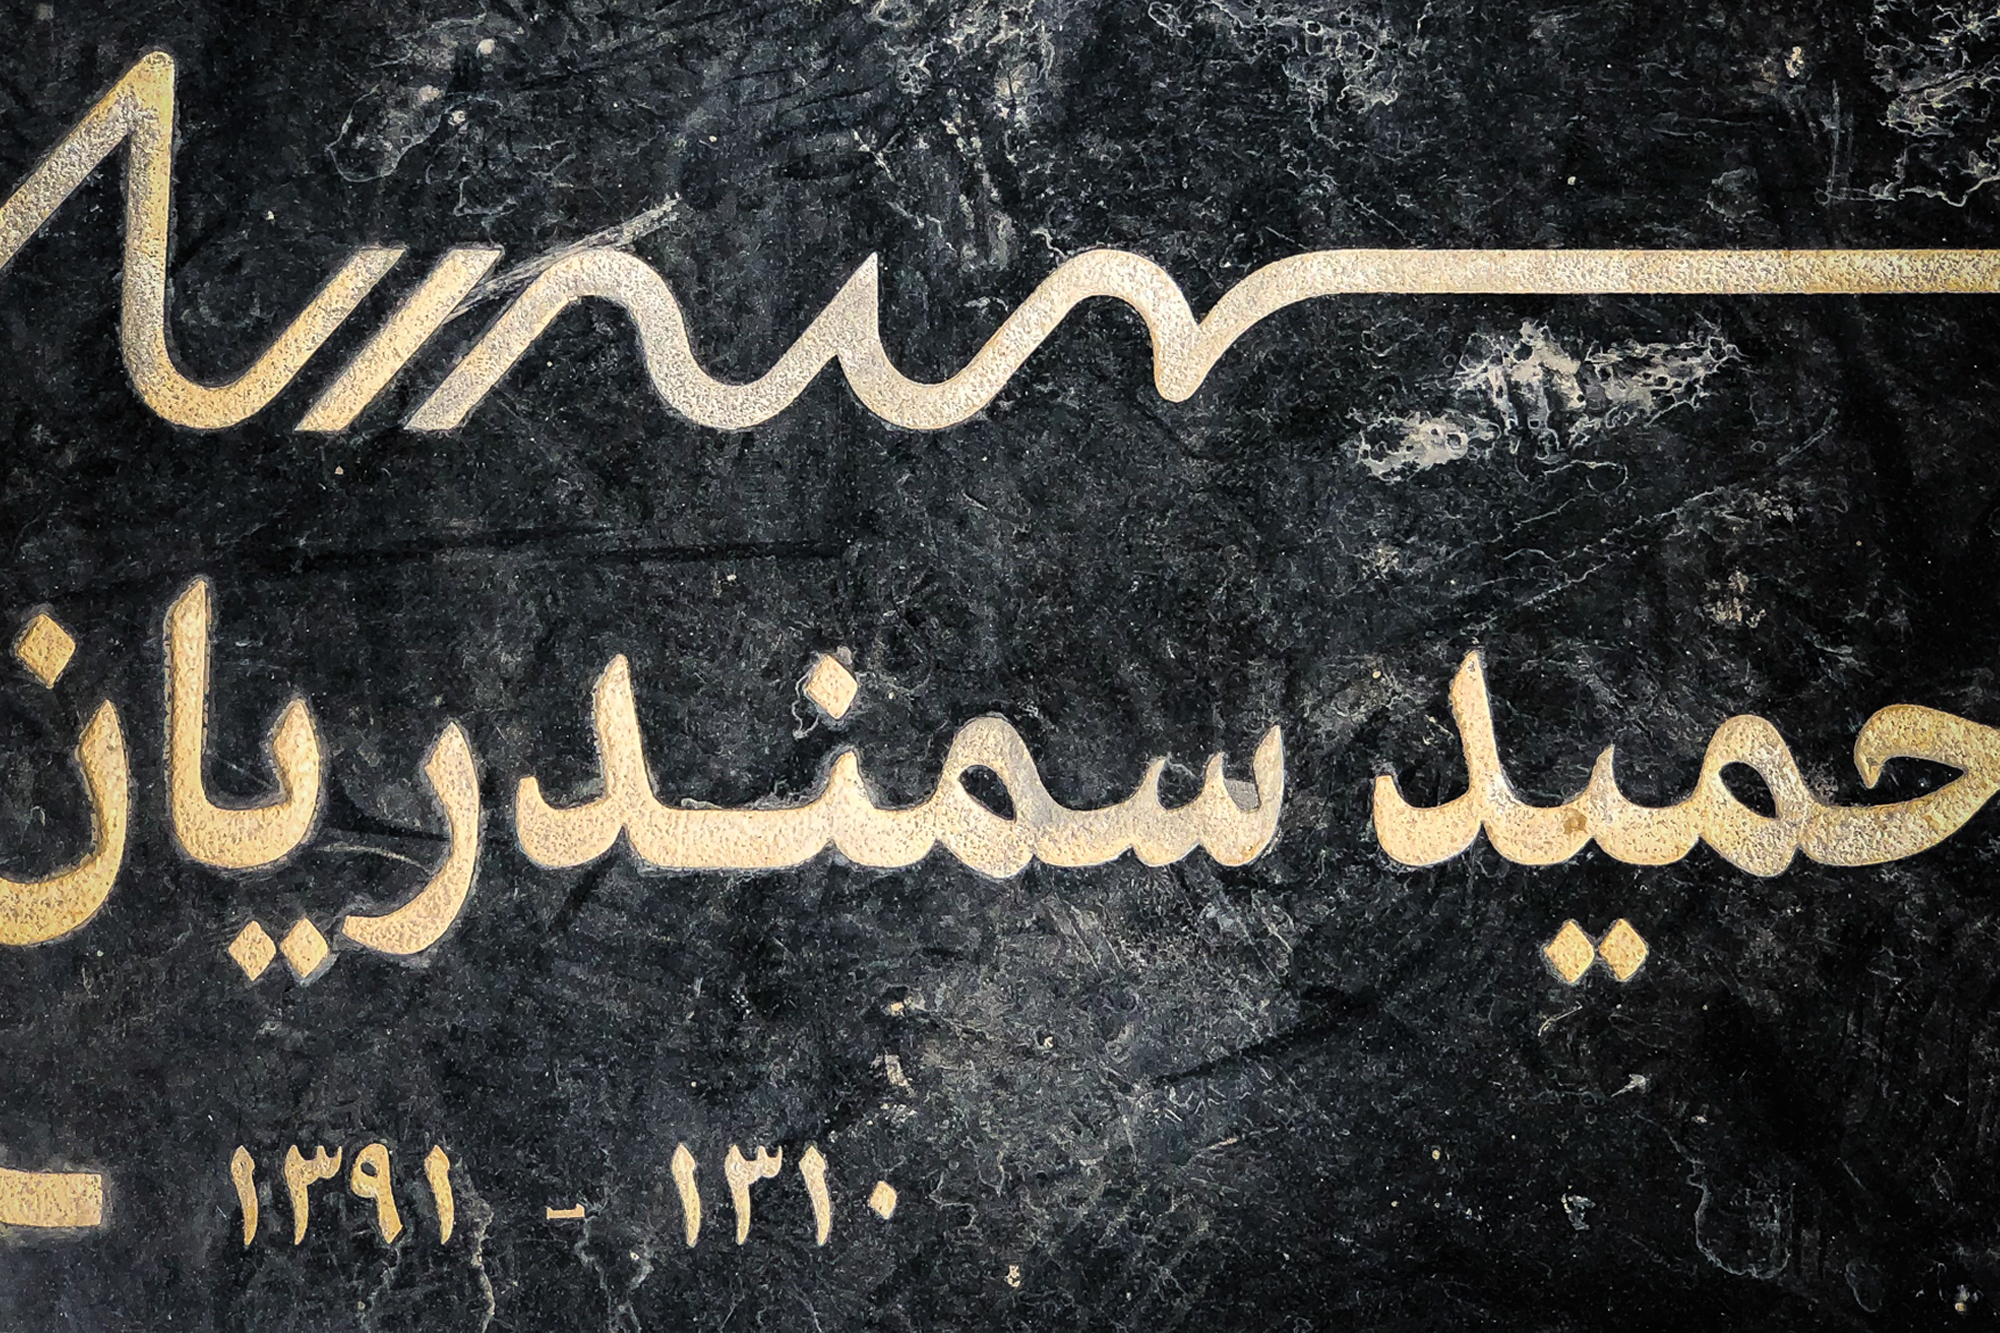 حمید سمندریان
۱۳۱۰ - ۱۳۹۱